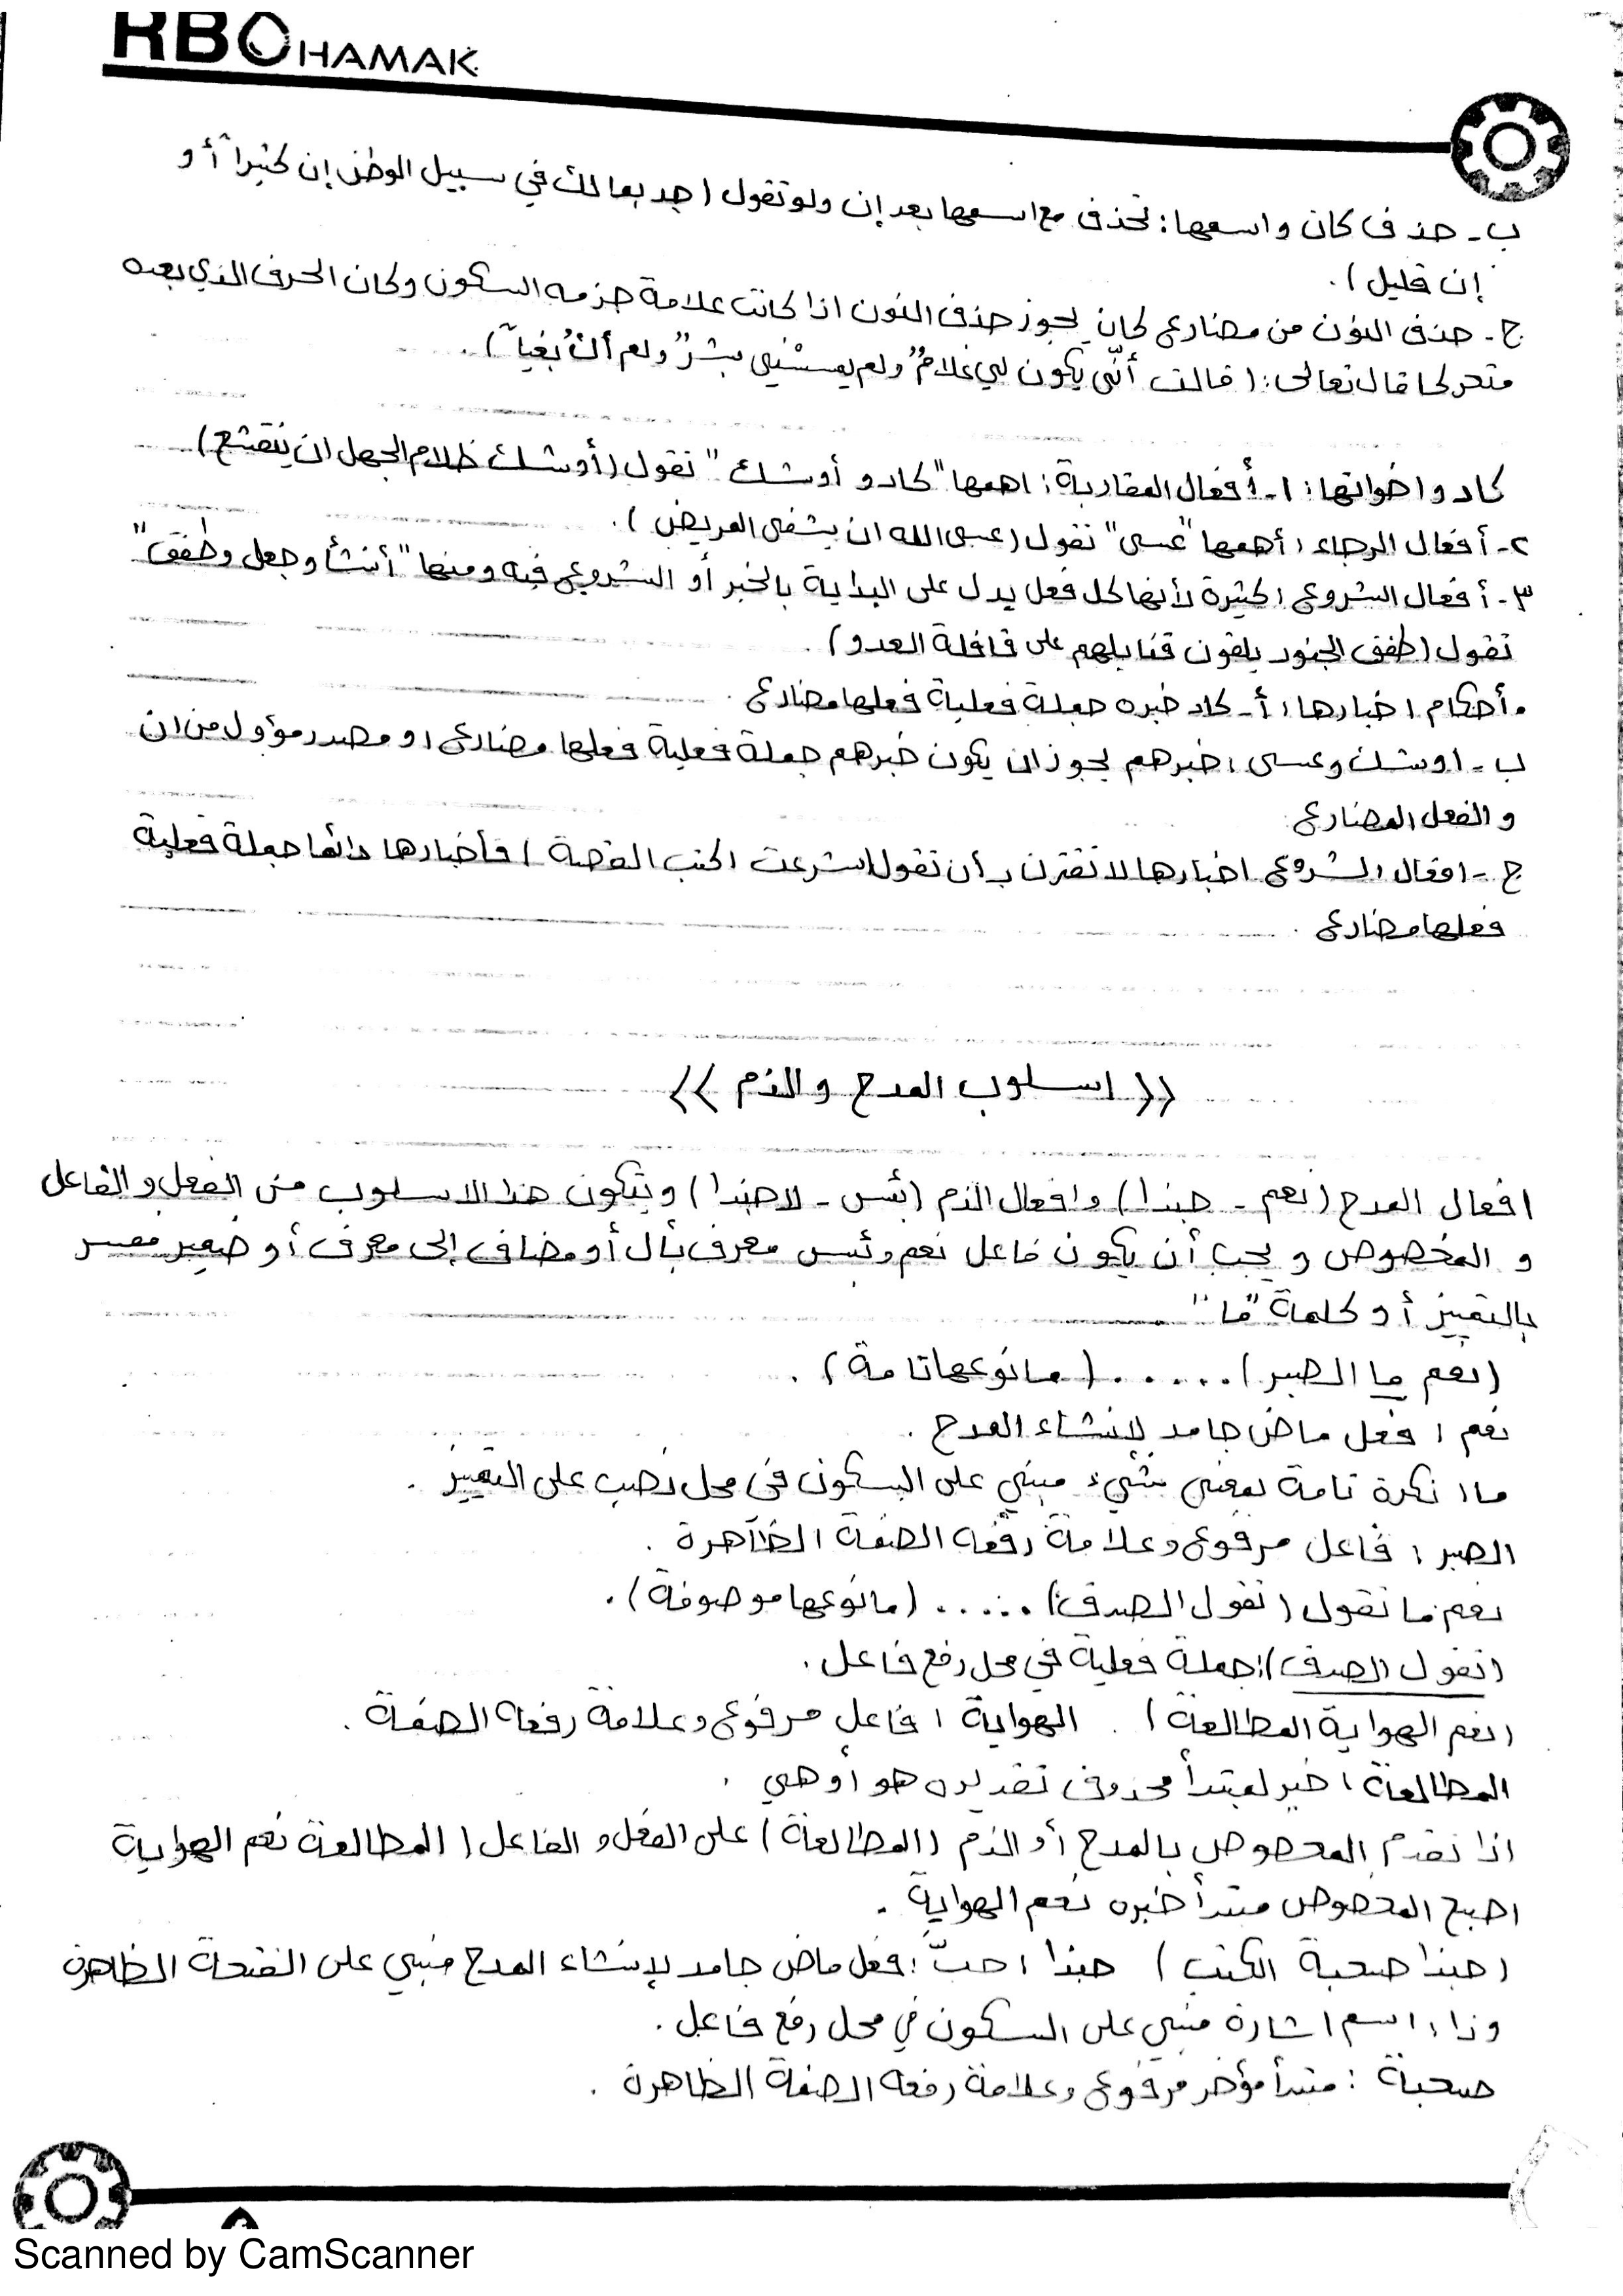 RBOHAMAK
ب- حذف كان واسمها: تحذف مع اسمها بعد إن ولو تقول (جد بمالك في سبيل الوطن إن كثيراً أو
إن قليل).
ج- حذف النون من مضارع كان يجوز حذف النون اذا كانت علامة جزمه السكون وكان الحرف الذي بعده
متحركا قال تعالى: (قالت أنّى يكون لي غلامٌ ولم يمسسني بشرٌ ولم أكُ بغياً).
كاد واخواتها: ١- أفعال المقاربة: اهمها "كاد و أوشك" تقول (أوشك ظلام الجهل ان ينقشع)
٢- أفعال الرجاء: أهمها "عسى" تقول (عسى الله ان يشفى المريض).
٣- أفعال الشروع: كثيرة لأنها كل فعل يدل على البداية بالخبر أو الشروع فيه ومنها "أنشأ وجعل وطفق"
تقول (طفق الجنود يلقون قنابلهم على قافلة العدو).
. أحكام اخبارها: أ- كاد خبره جملة فعلية فعلها مضارع.
ب- اوشك وعسى: خبرهم يجوز ان يكون خبرهم جملة فعلية فعلها مضارع او مصدر مؤول من ان
و الفعل المضارع
ج- افعال الشروع اخبارها لا تقترن بـ أن تقول (شرعت اكتب القصة) فأخبارها دائما جملة فعلية
فعلها مضارع.
<< اسلوب المدح والذم >>
افعال المدح (نعم - حبذا) وافعال الذم (بئس - لا حبذا) ويتكون هذا الاسلوب من الفعل و الفاعل
و المخصوص ويجب أن يكون فاعل نعم وبئس معرف بأل أو مضاف إلى معرف أو ضمير مفسر
بالتمييز أو كلمة "ما"
(نعم ما الصبر)...... (ما نوعها تامة).
نعم: فعل ماض جامد لإنشاء المدح.
ما: نكرة تامة بمعنى شيء مبني على السكون في محل نصب على التمييز.
الصبر: فاعل مرفوع وعلامة رفعه الضمة الظاهرة.
نعم ما تقول (تقول الصدق)...... (ما نوعها موصوفة).
(تقول الصدق): جملة فعلية في محل رفع فاعل.
(نعم الهواية المطالعة). الهواية: فاعل مرفوع وعلامة رفعه الضمة.
المطالعة: خبر لمبتدأ محذوف تقديره هو أو هي.
اذا تقدم المخصوص بالمدح أو الذم (المطالعة) على الفعل و الفاعل (المطالعة نعم الهواية
اصبح المخصوص مبتدأ خبره نعم الهواية.
(حبذا صحبة الكتب) حبذا: حبّ: فعل ماض جامد لإنشاء المدح مبني على الفتحة الظاهرة
وذا: اسم اشارة مبني على السكون في محل رفع فاعل.
صحبة: مبتدأ مؤخر مرفوع وعلامة رفعه الضمة الظاهرة.
Scanned by CamScanner